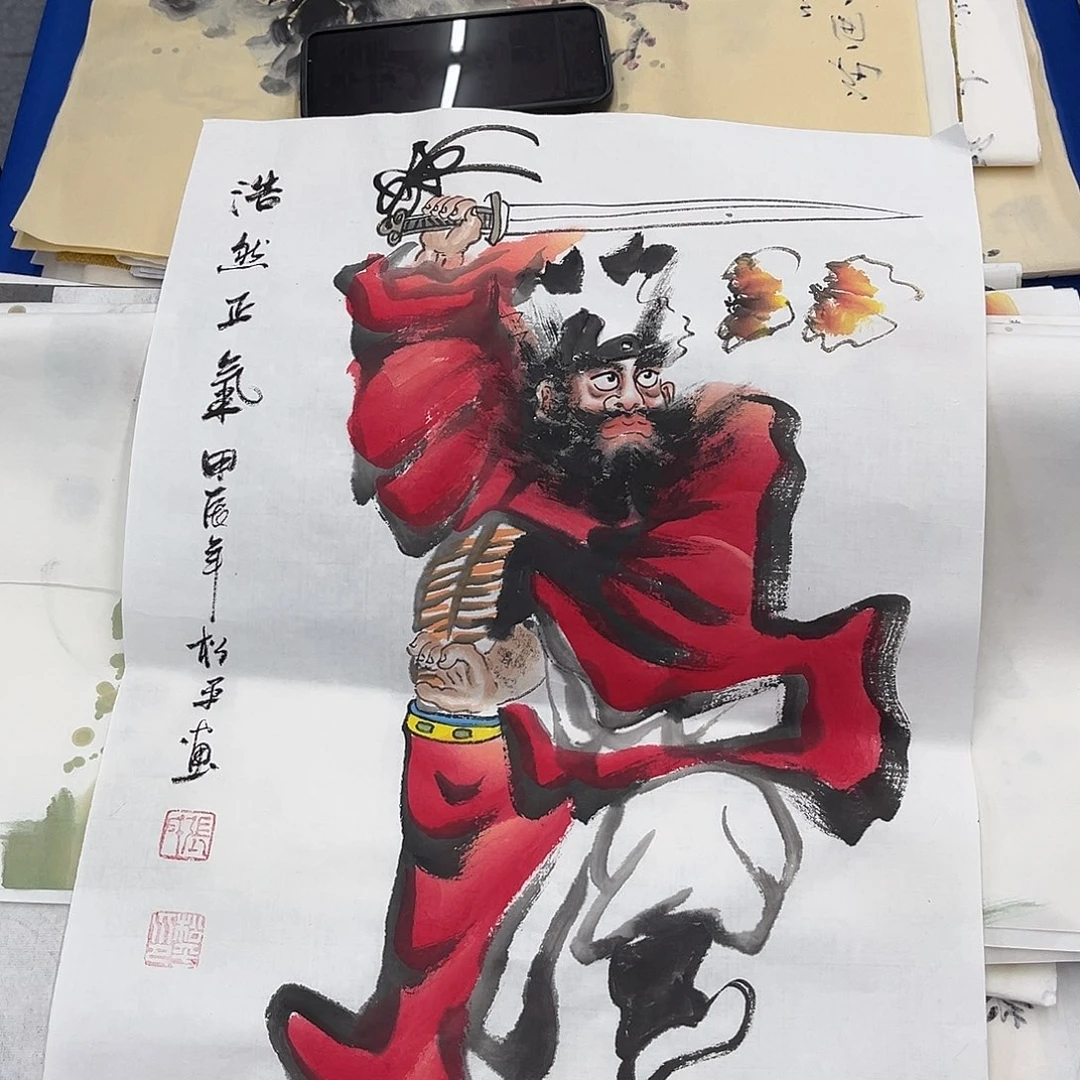 浩然正氣 甲辰年 松平畫
張